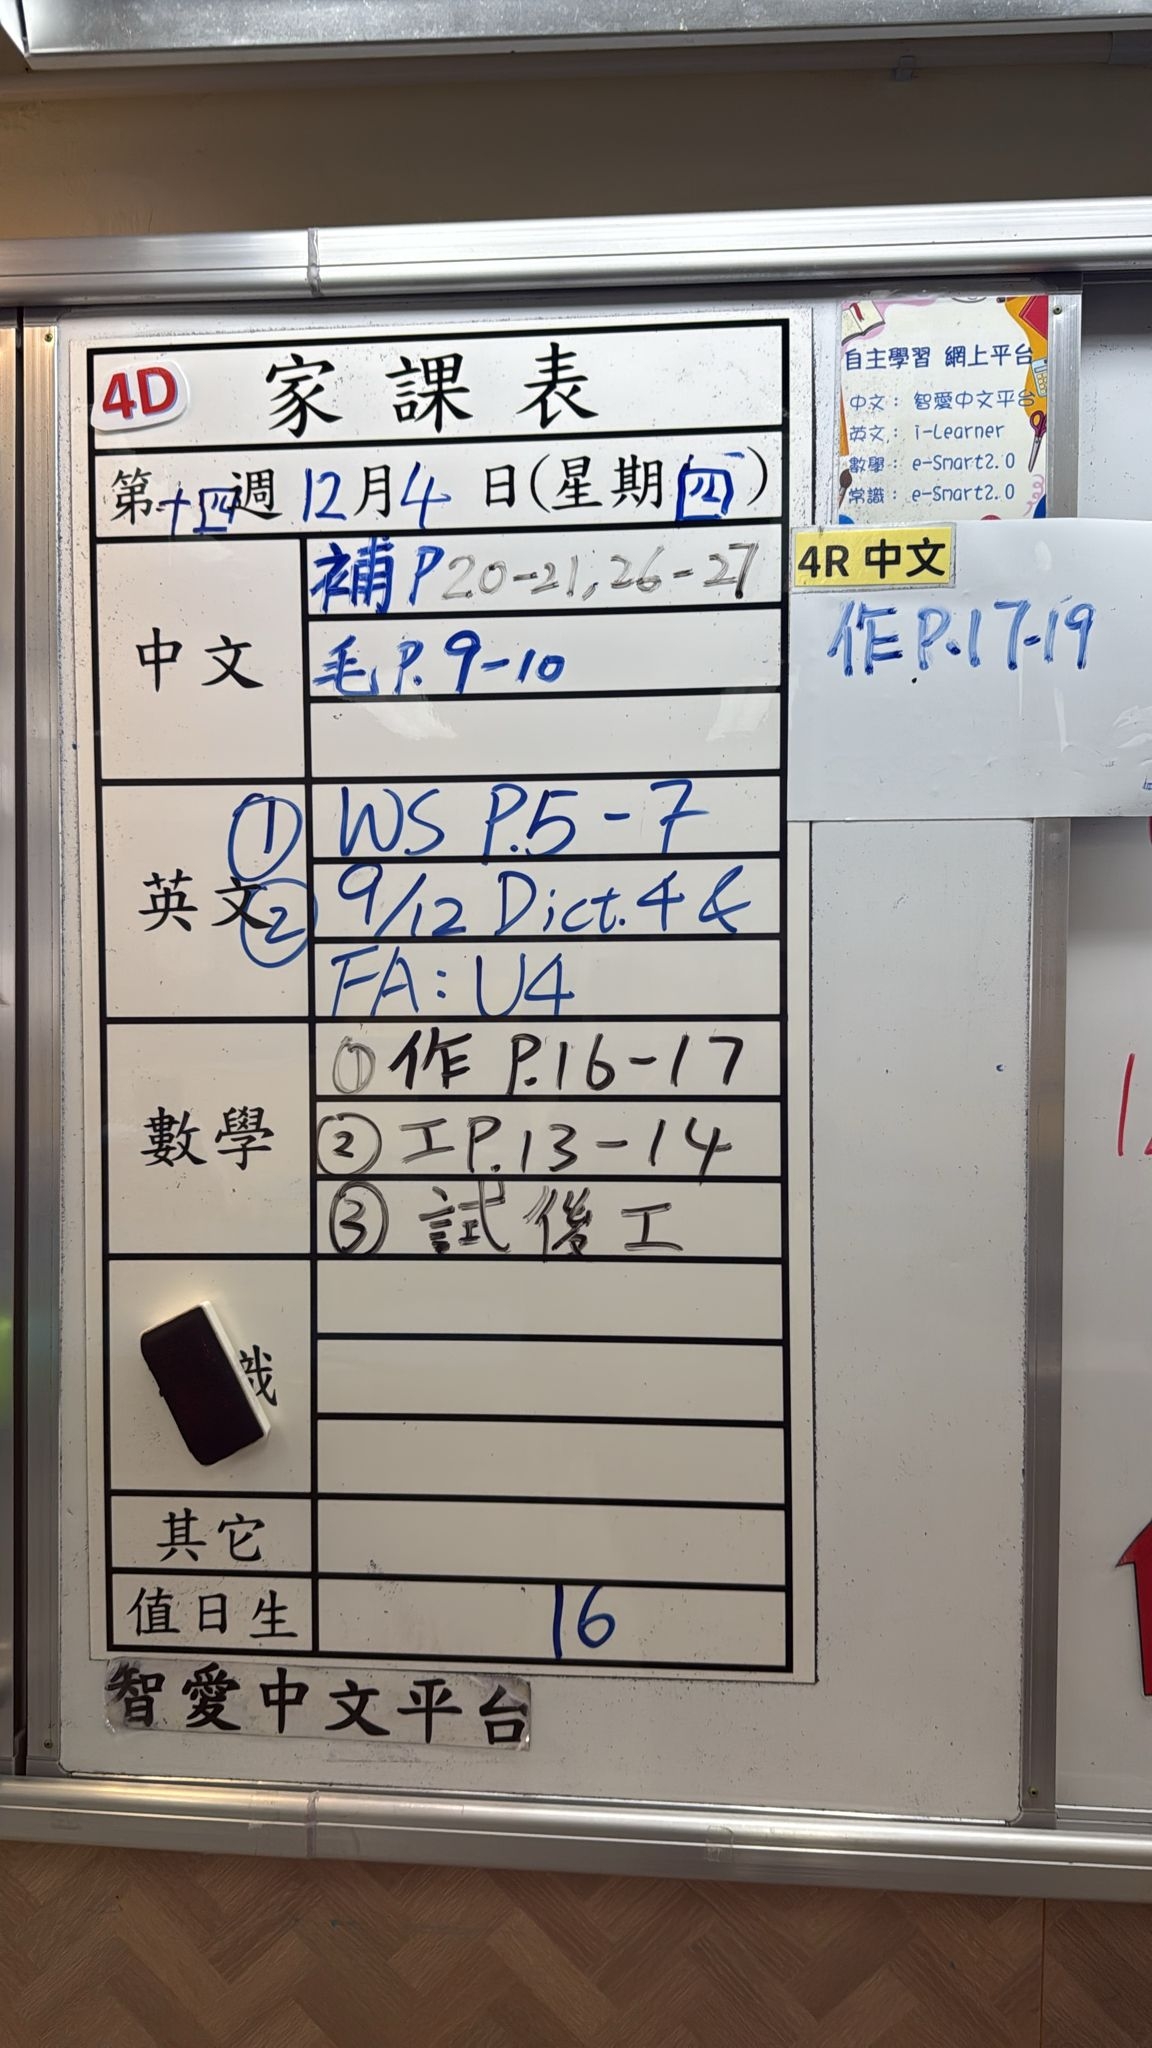 4D 家課表
第十四週 12月4日(星期四)
中文
補P20-21,26-27
毛P.9-10
英文
① WS P.5-7
② 9/12 Dict.4 &
FA: U4
數學
① 作 P.16-17
② 工P.13-14
③ 試後工
識
其它
值日生 16
智愛中文平台
自主學習 網上平台
中文： 智愛中文平台
英文： i-Learner
數學： e-Smart2.0
常識： e-Smart2.0
4R 中文
作P.17-19